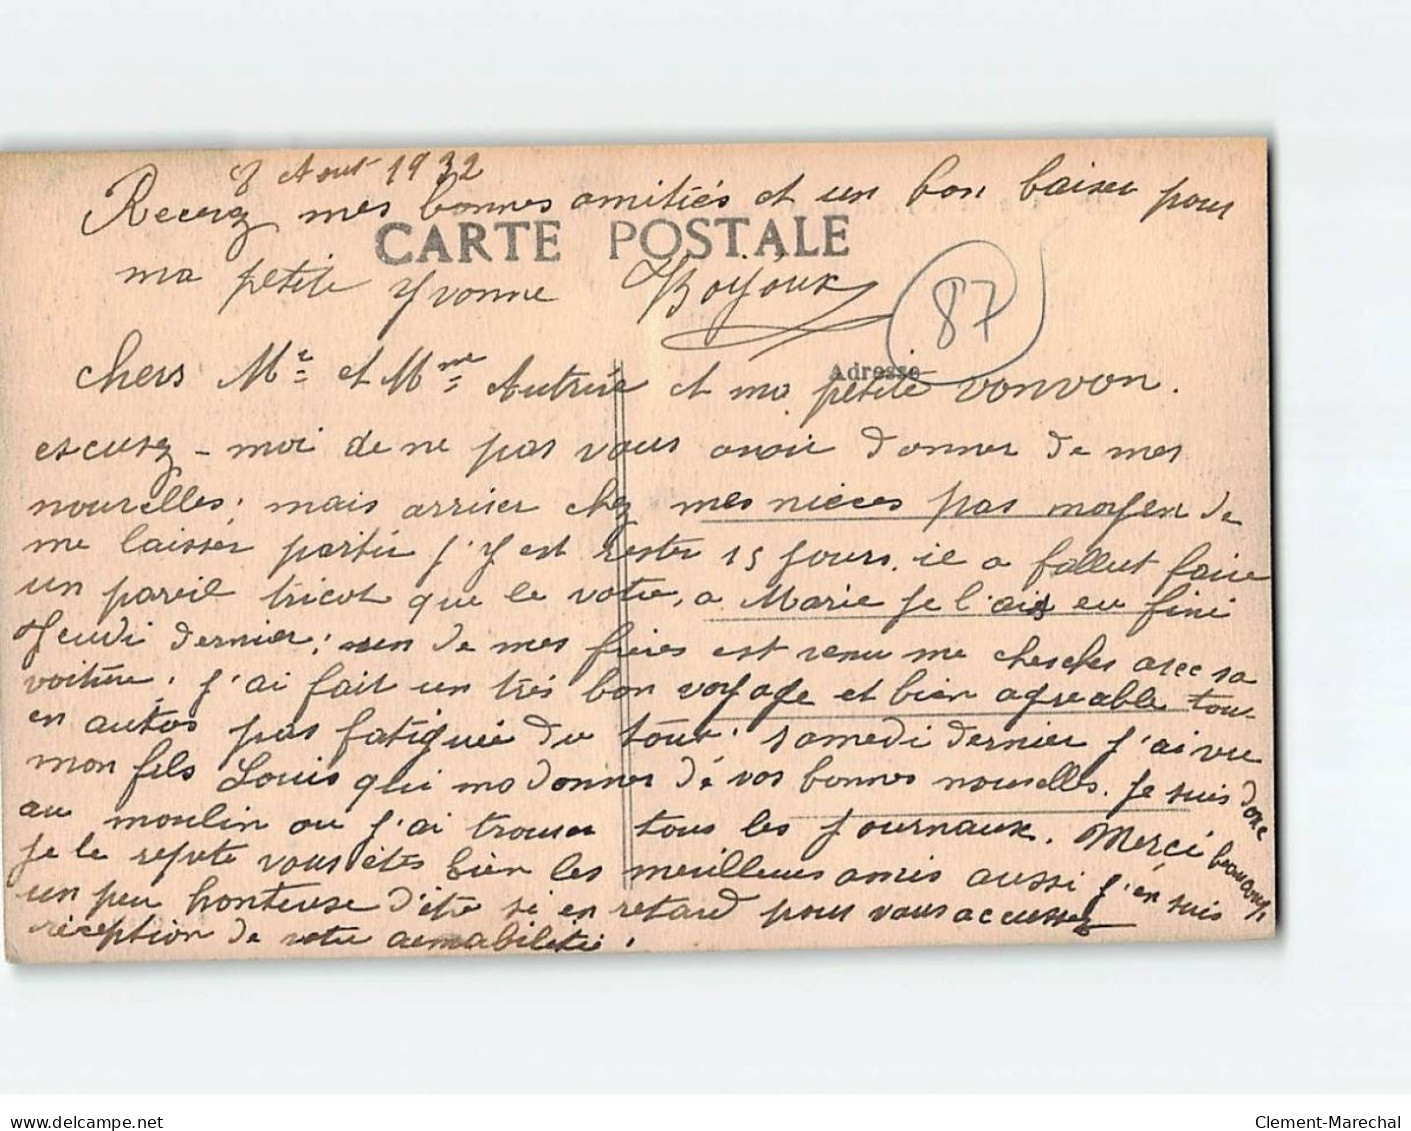 8 Aout 1932
Recevez mes bonnes amitiés et un bon baiser pour
CARTE POSTALE
ma petite Yvonne
87
Adresse
chers Mr et Mme et ma petite vonvon.
excusez-moi de ne pas vous avoir donner de mes
nouvelles; mais arriver chez mes nieces pas moyen de
me laisser partir j'y est rester 15 jours. il a fallut faire
un pareil tricot que le votre, a Marie je l'ais eu fini
Jeudi dernier; un de mes frères est venu me chercher avec sa
voiture; j'ai fait un très bon voyage et bien agreable tout
en autos pas fatiguée du tout; samedi dernier j'ai vu
mon fils Louis qui ma donner dé vos bonnes nouvelles. je suis donc
au moulin ou j'ai trouver tous les journaux. Merci beaucoup,
je le repete vous étes bien les meilleurs amis aussi j'en suis
un peu honteuse d'étre si en retard pour vous accusser
réception de votre aimabilitée.
Clement-Marechal